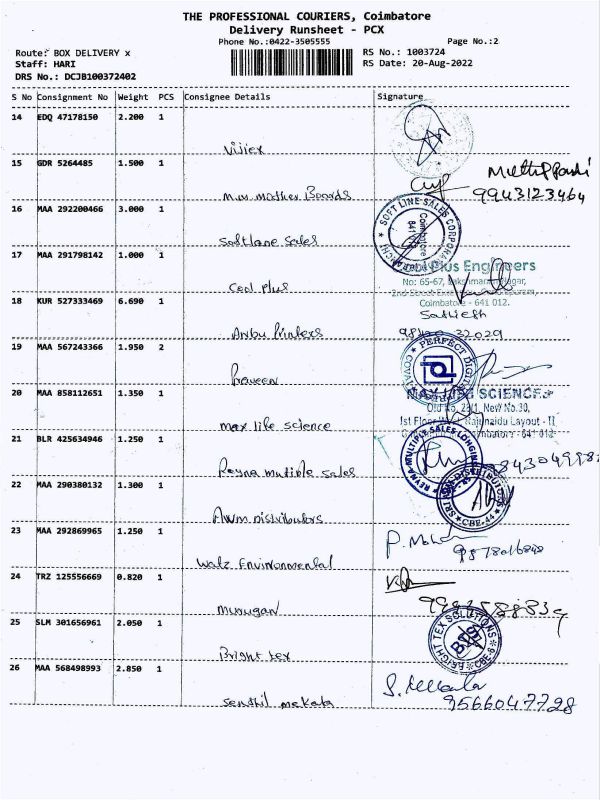 THE PROFESSIONAL COURIERS, Coimbatore
Delivery Runsheet - PCX
Phone No.:0422-3505555
Page No.:2
Route: BOX DELIVERY x
RS No.: 1003724
Staff: HARI
RS Date: 20-Aug-2022
DRS No.: DCJB100372402
S No Consignment No Weight PCS Consignee Details Signature
14 EDQ 47178150 2.200 1
Vijiex
15 GDR 5264485 1.500 1
M.M. Mother Boards
9943123464
16 MAA 292200466 3.000 1
SOFT LINE SALES CORPORA
Coimbatore
Softlane Sales
17 MAA 291798142 1.000 1
Plus Engineers
No: 65-67,
Ceol Plus
Coimbatore - 641 012.
18 KUR 527333469 6.690 1
Sathish
Anbu Printers
32029
19 MAA 567243366 1.950 2
PERFECT DIGIT
Praveen
20 MAA 858112651 1.350 1
MAX LIFE SCIENCES
Old No. 28/1, New No.30,
max life science
1st Floor, Rajunaidu Layout - II
641 012
21 BLR 425634946 1.250 1
REYNA MULTIPLE SALES
Reyna mutiple sales
22 MAA 290380132 1.300 1
CBE-44
Awm Distributors
23 MAA 292869965 1.250 1
P. Moh
Watz Environmental
24 TRZ 125556669 0.820 1
Murugan
25 SLM 301656961 2.050 1
BRIGHT TEX SOLUTIONS
Bright tex
26 MAA 568498993 2.850 1
Senthil mekala
S. Mekala
9566047728